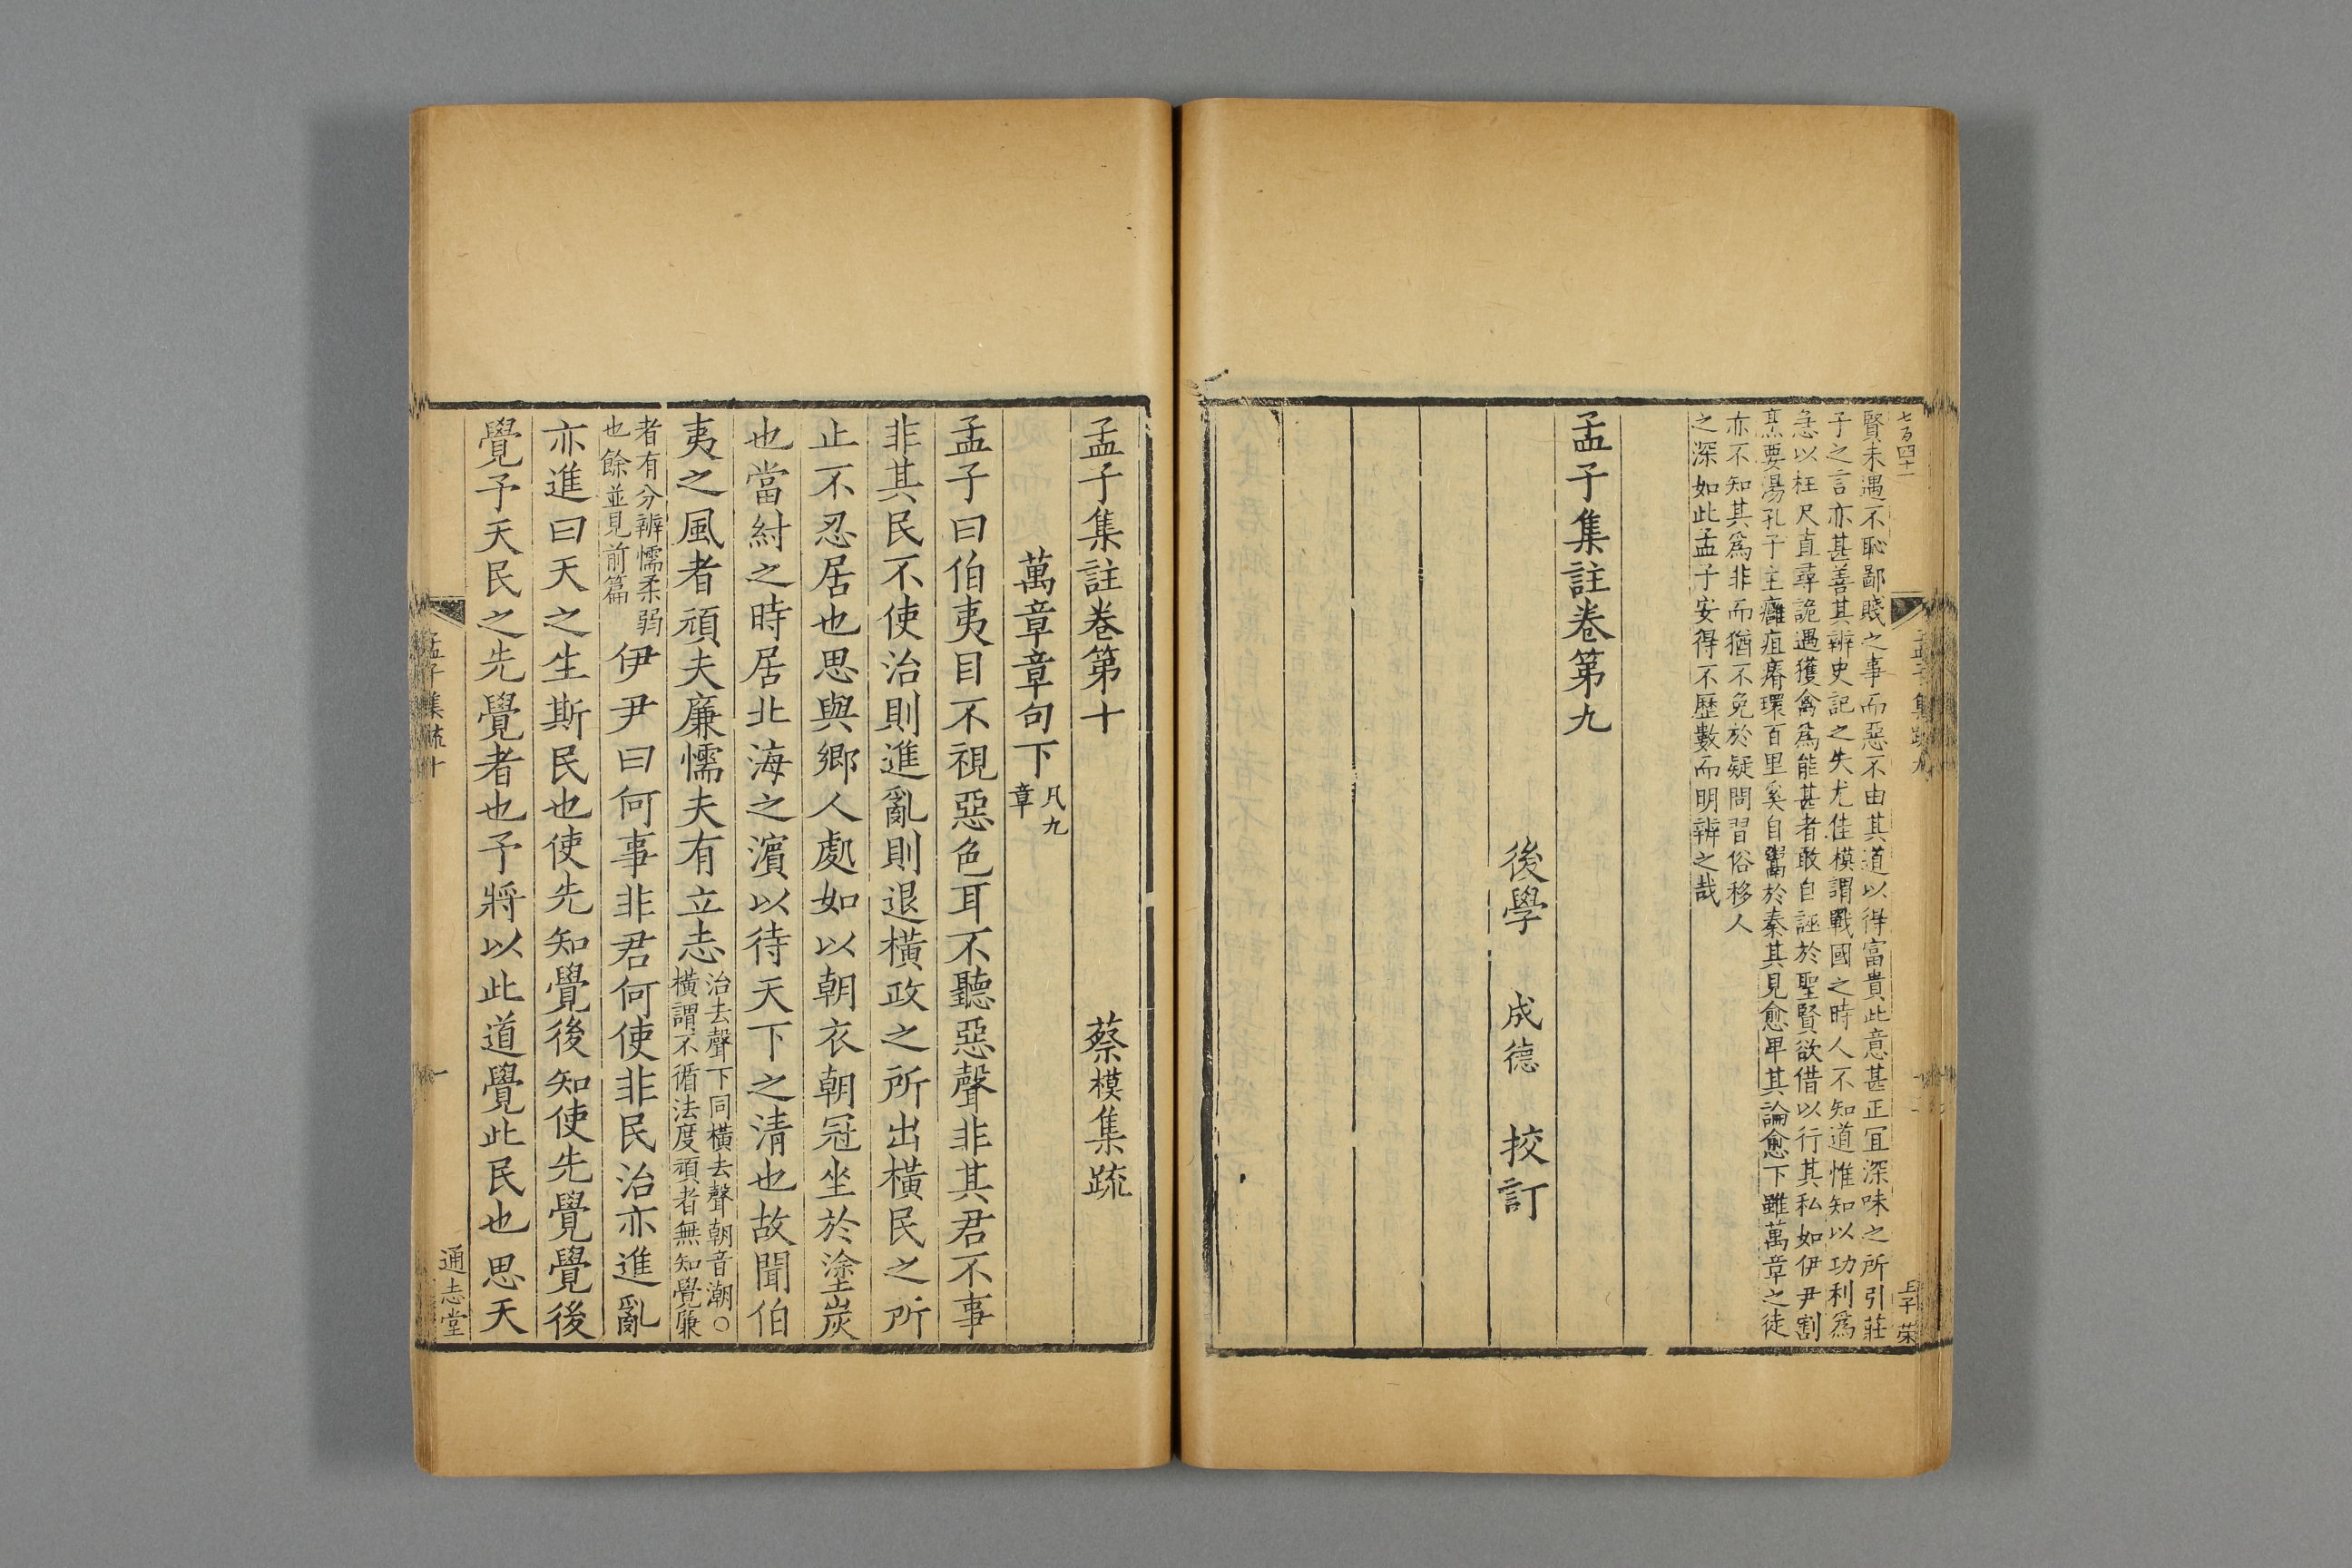 七百四十一
賢未遇不恥鄙賤之事而惡不由其道以得富貴此意甚正宜深味之所引莊
子之言亦甚善其辨史記之失尤佳模謂戰國之時人不知道惟知以功利爲
急以枉尺直尋詭遇獲禽爲能甚者敢自誣於聖賢欲借以行其私如伊尹割
烹要湯孔子主癰疽瘠環百里奚自鬻於秦其見愈卑其論愈下雖萬章之徒
亦不知其爲非而猶不免於疑問習俗移人
之深如此孟子安得不歷數而明辨之哉
孟子集註卷第九
後學 成德 挍訂
孟子集註卷第十 蔡模集疏
萬章章句下凡九
章
孟子曰伯夷目不視惡色耳不聽惡聲非其君不事
非其民不使治則進亂則退橫政之所出橫民之所
止不忍居也思與鄉人處如以朝衣朝冠坐於塗炭
也當紂之時居北海之濱以待天下之清也故聞伯
夷之風者頑夫廉懦夫有立志治去聲下同橫去聲朝音潮○
橫謂不循法度頑者無知覺廉
者有分辨懦柔弱
也餘並見前篇伊尹曰何事非君何使非民治亦進亂
亦進曰天之生斯民也使先知覺後知使先覺覺後
覺予天民之先覺者也予將以此道覺此民也思天
孟子集疏十
一
通志堂